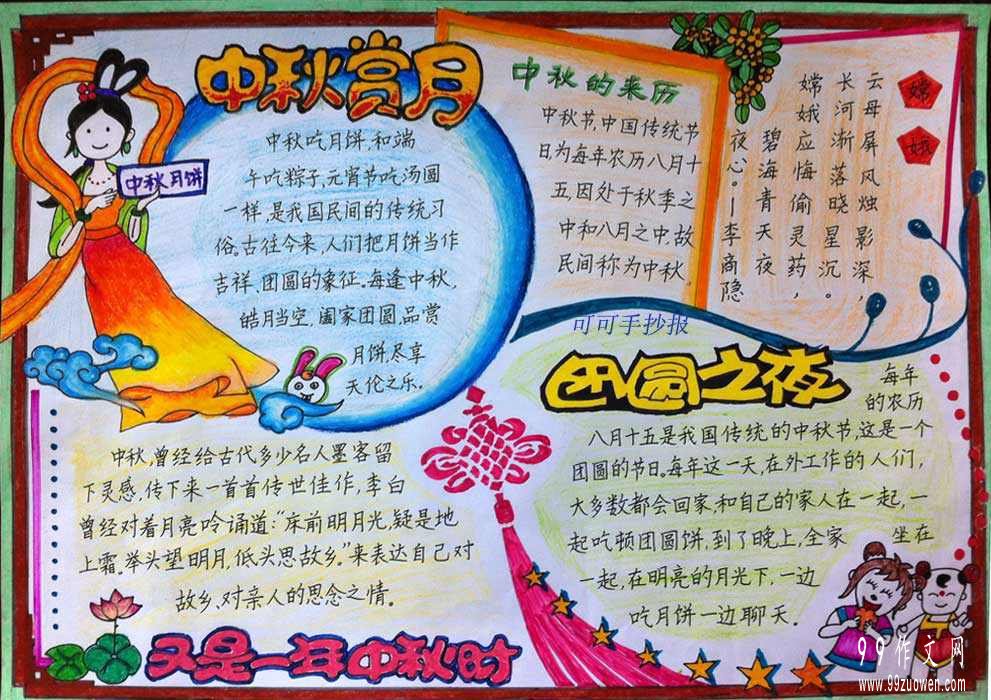 中秋赏月
中秋月饼
中秋吃月饼,和端
午吃粽子,元宵节吃汤圆
一样,是我国民间的传统习
俗。古往今来,人们把月饼当作
吉祥、团圆的象征。每逢中秋,
皓月当空,阖家团圆,品赏
月饼,尽享
天伦之乐。
中秋的来历
中秋节,中国传统节
日为每年农历八月十
五,因处于秋季之
中和八月之中,故
民间称为中秋。
嫦娥
云母屏风烛影深,
长河渐落晓星沉。
嫦娥应悔偷灵药,
碧海青天夜
夜心。—李商隐
可可手抄报
团圆之夜
每年
的农历
八月十五是我国传统的中秋节,这是一个
团圆的节日。每年这一天,在外工作的人们,
大多数都会回家,和自己的家人在一起,一
起吃顿团圆饼,到了晚上,全家 坐在
一起,在明亮的月光下,一边
吃月饼一边聊天.
中秋,曾经给古代多少名人墨客留
下灵感,传下来一首首传世佳作,李白
曾经对着月亮吟诵道:“床前明月光,疑是地
上霜。举头望明月,低头思故乡。”来表达自己对
故乡、对亲人的思念之情。
又是一年中秋时
99作文网
www.99zuowen.com